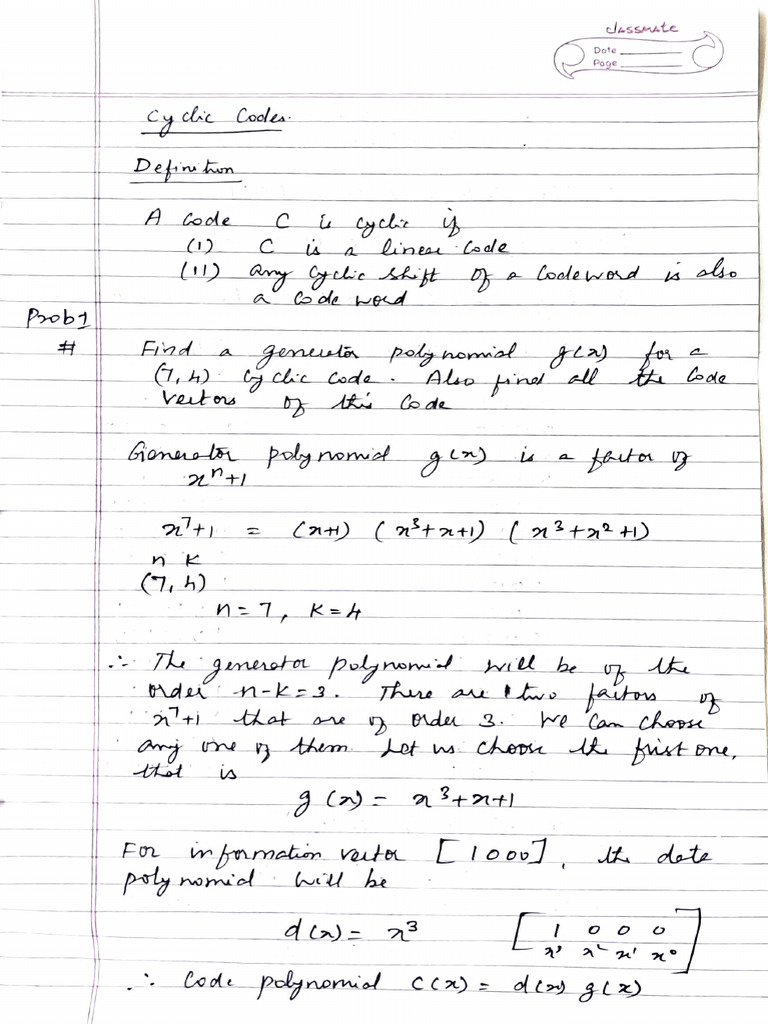 classmate
Date
Page
Cyclic Codes.
Definition
A code C is cyclic if
(I) C is a linear code
(II) any cyclic shift of a codeword is also
a code word
Prob 1
# Find a generator polynomial g(x) for a
(7,4) cyclic code. Also find all the code
vectors of this code
Generator polynomial g(x) is a factor of
xⁿ+1
x⁷+1 = (x+1) (x³+x+1) (x³+x²+1)
n k
(7,4)
n=7, K=4
∴ The generator polynomial will be of the
order n-k=3. There are two factors of
x⁷+1 that are of order 3. We can choose
any one of them. Let us choose the first one,
that is
g(x) = x³+x+1
For information vector [1000], the data
polynomial will be
d(x) = x³ [1 0 0 0]
x³ x² x¹ x⁰
∴ Code polynomial C(x) = d(x) g(x)